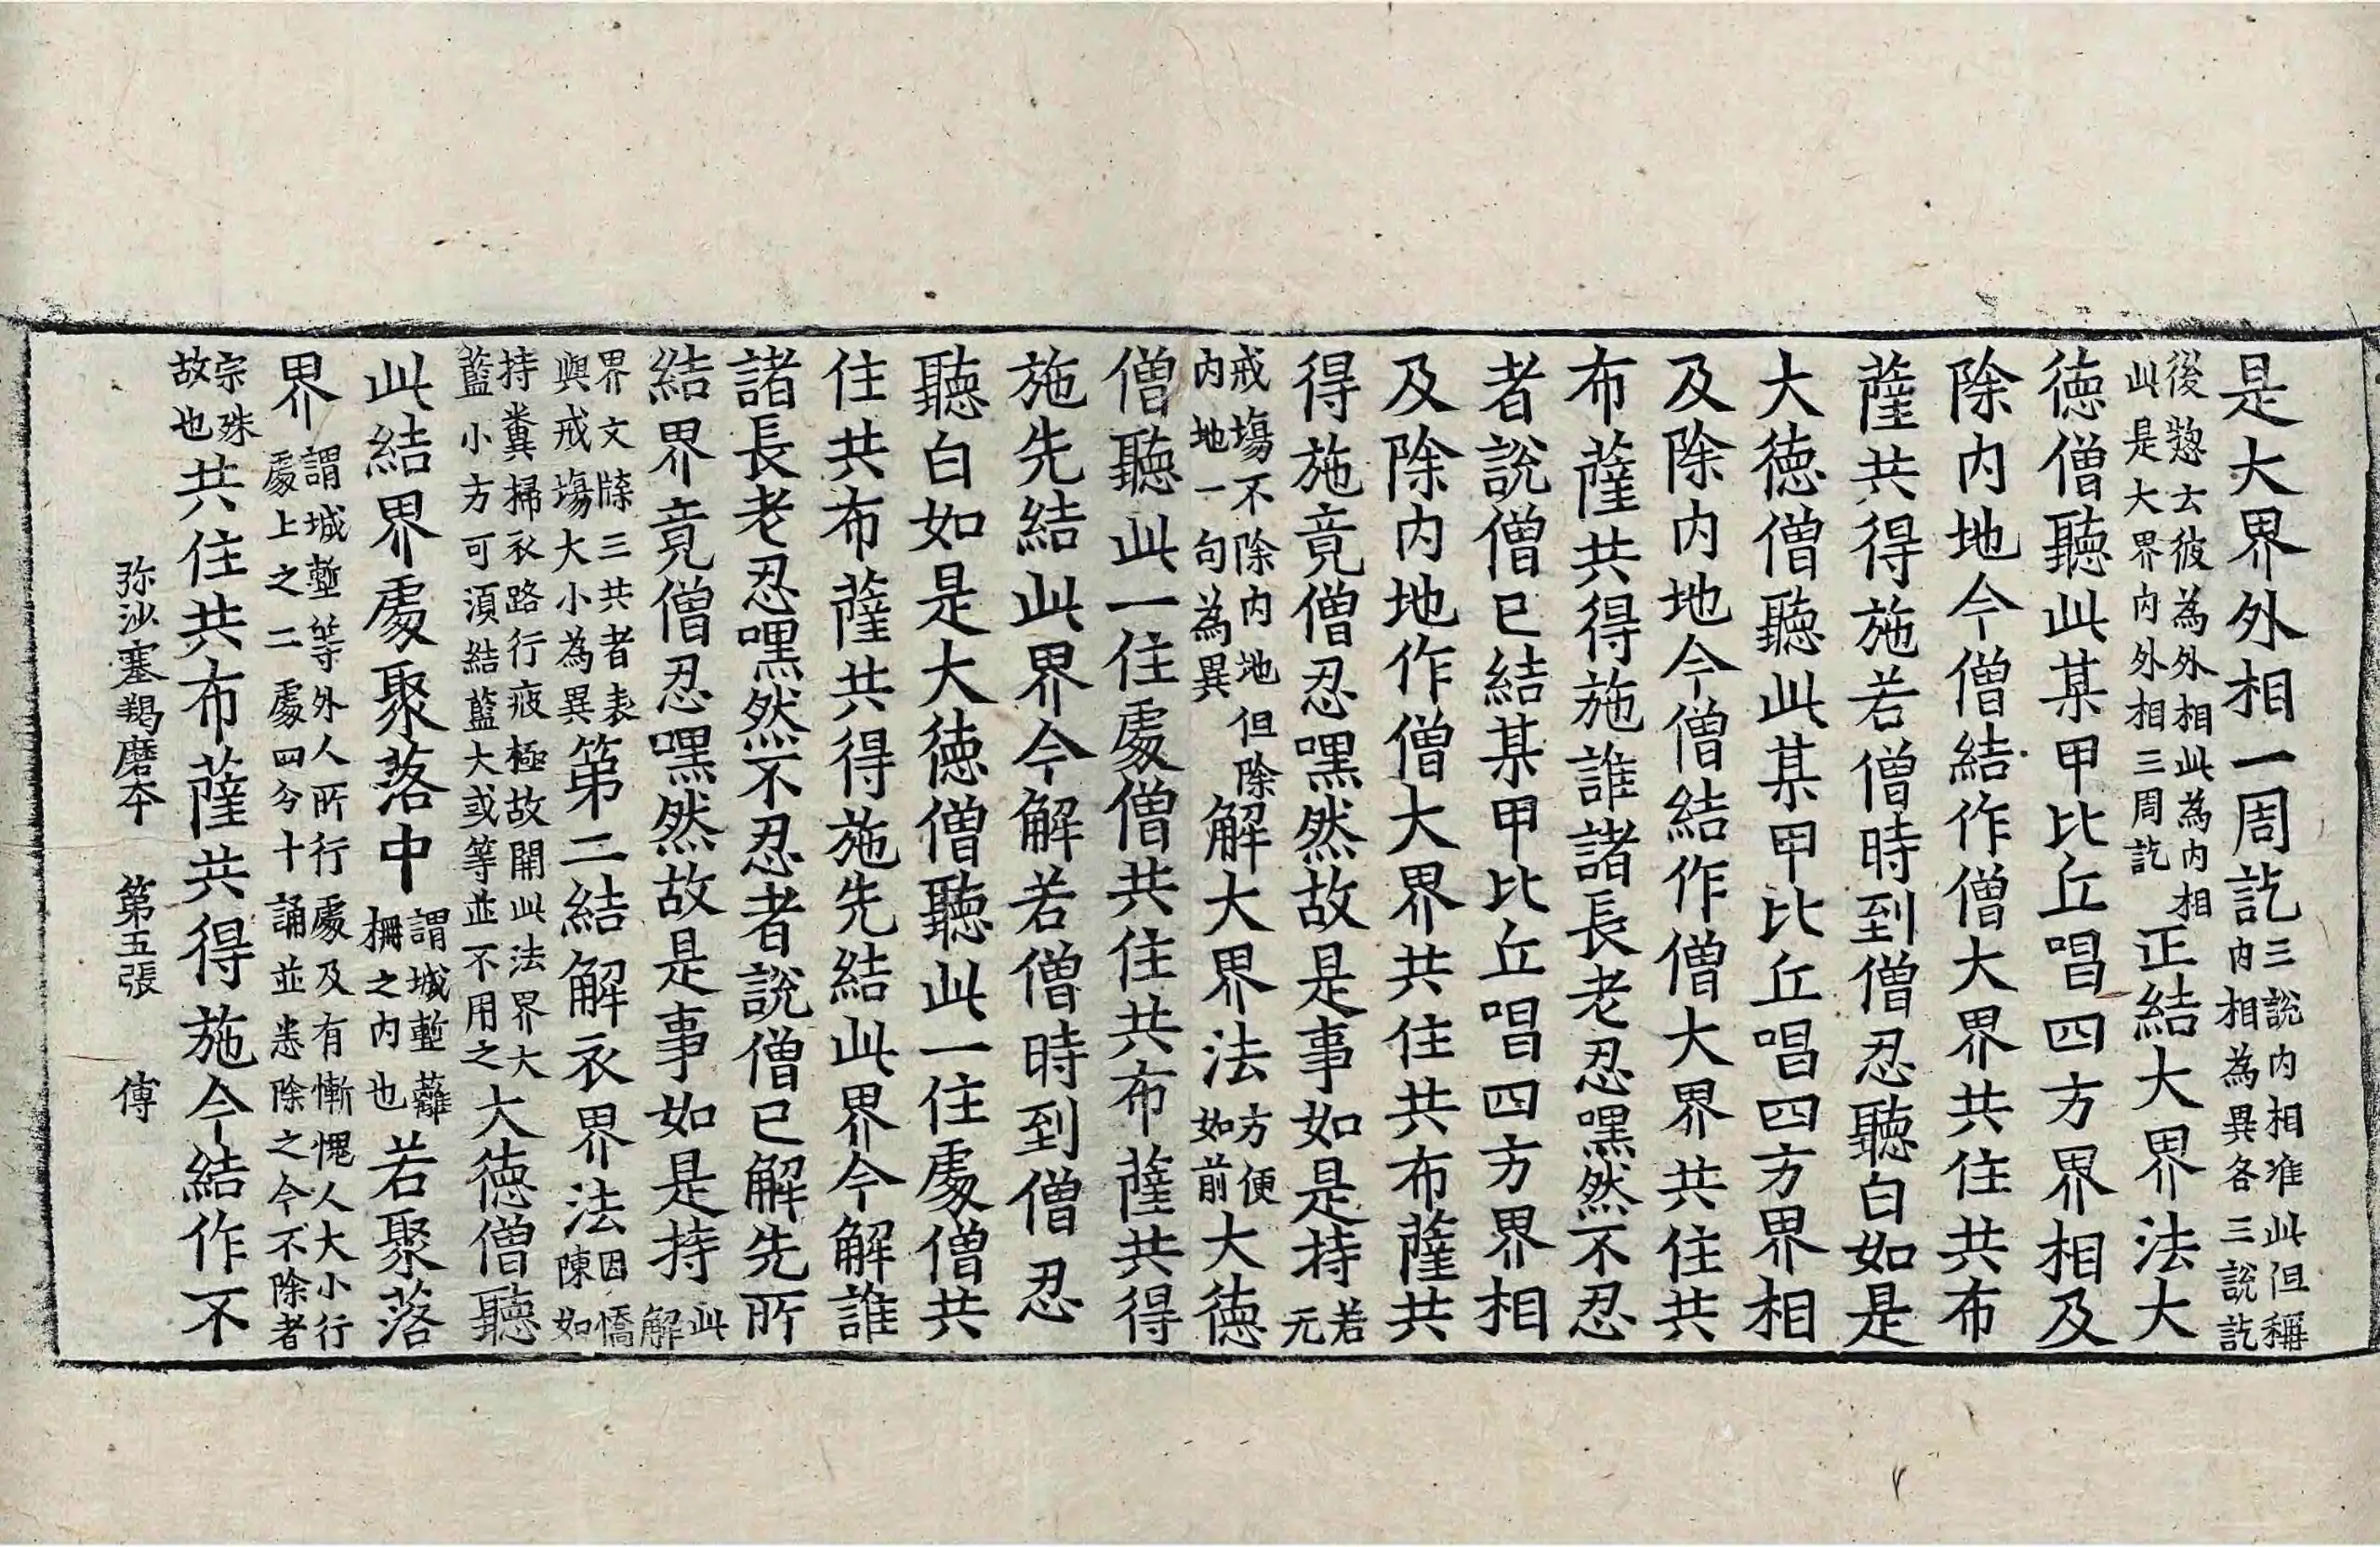 是大界外相一周訖三說內相准此但稱內相為異各三說訖
後惣云彼為外相此為內相此是大界內外相三周訖正結大界法大
德僧聽此某甲比丘唱四方界相及
除內地今僧結作僧大界共住共布
薩共得施若僧時到僧忍聽白如是
大德僧聽此某甲比丘唱四方界相
及除內地今僧結作僧大界共住共
布薩共得施誰諸長老忍嘿然不忍
者說僧已結某甲比丘唱四方界相
及除內地作僧大界共住共布薩共
得施竟僧忍嘿然故是事如是持若无
戒場不除內地但除內地一句為異解大界法方便如前大德
僧聽此一住處僧共住共布薩共得
施先結此界今解若僧時到僧忍
聽白如是大德僧聽此一住處僧共
住共布薩共得施先結此界今解誰
諸長老忍嘿然不忍者說僧已解先所
結界竟僧忍嘿然故是事如是持此解
界文牒三共者表與戒場大小為異第二結解衣界法因憍陳如
持糞掃衣路行疲極故開此法界大藍小方可湏結藍大或等並不用之大德僧聽
此結界處聚落中謂城塹蘺柵之內也若聚落
界謂城塹等外人所行處及有慚愧人大小行處上之二處四分十誦並悉除之今不除者
宗殊故也共住共布薩共得施今結作不
弥沙塞羯磨本 第五張 傳